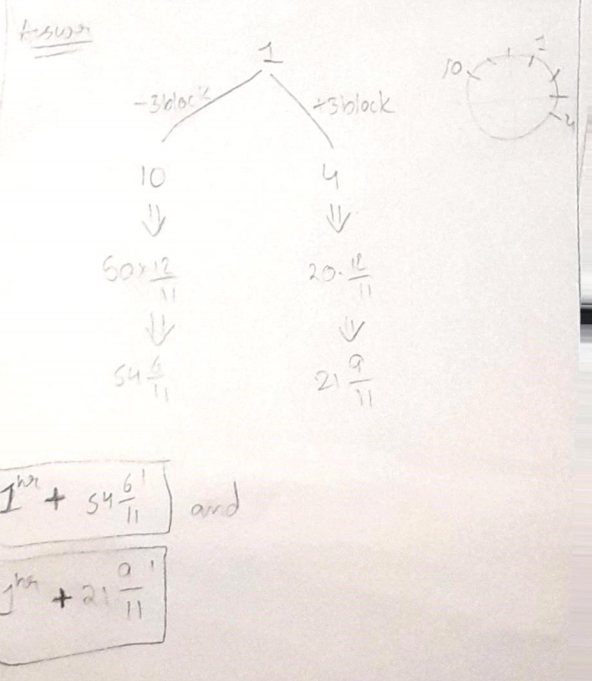 Answer
1
10 1 4
-3block +3block
10 4
⇓ ⇓
50×12/11 20·12/11
⇓ ⇓
54 6/11 21 9/11
1hr + 54 6/11' and
1hr + 21 9/11'